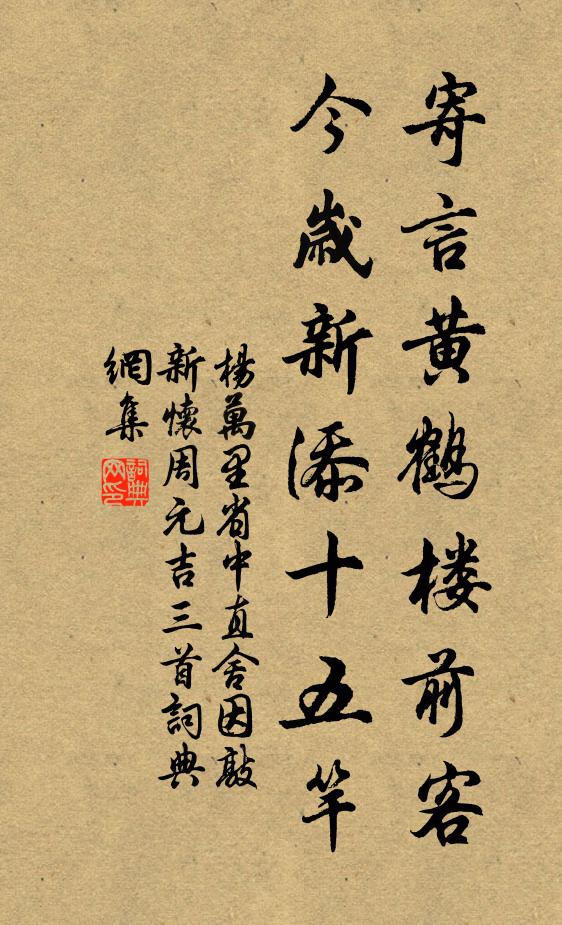 寄言黄鹤楼前客
今歲新添十五竿
楊萬里省中直舍因敲
新懷周元吉三首詞典
網集
詞典网印